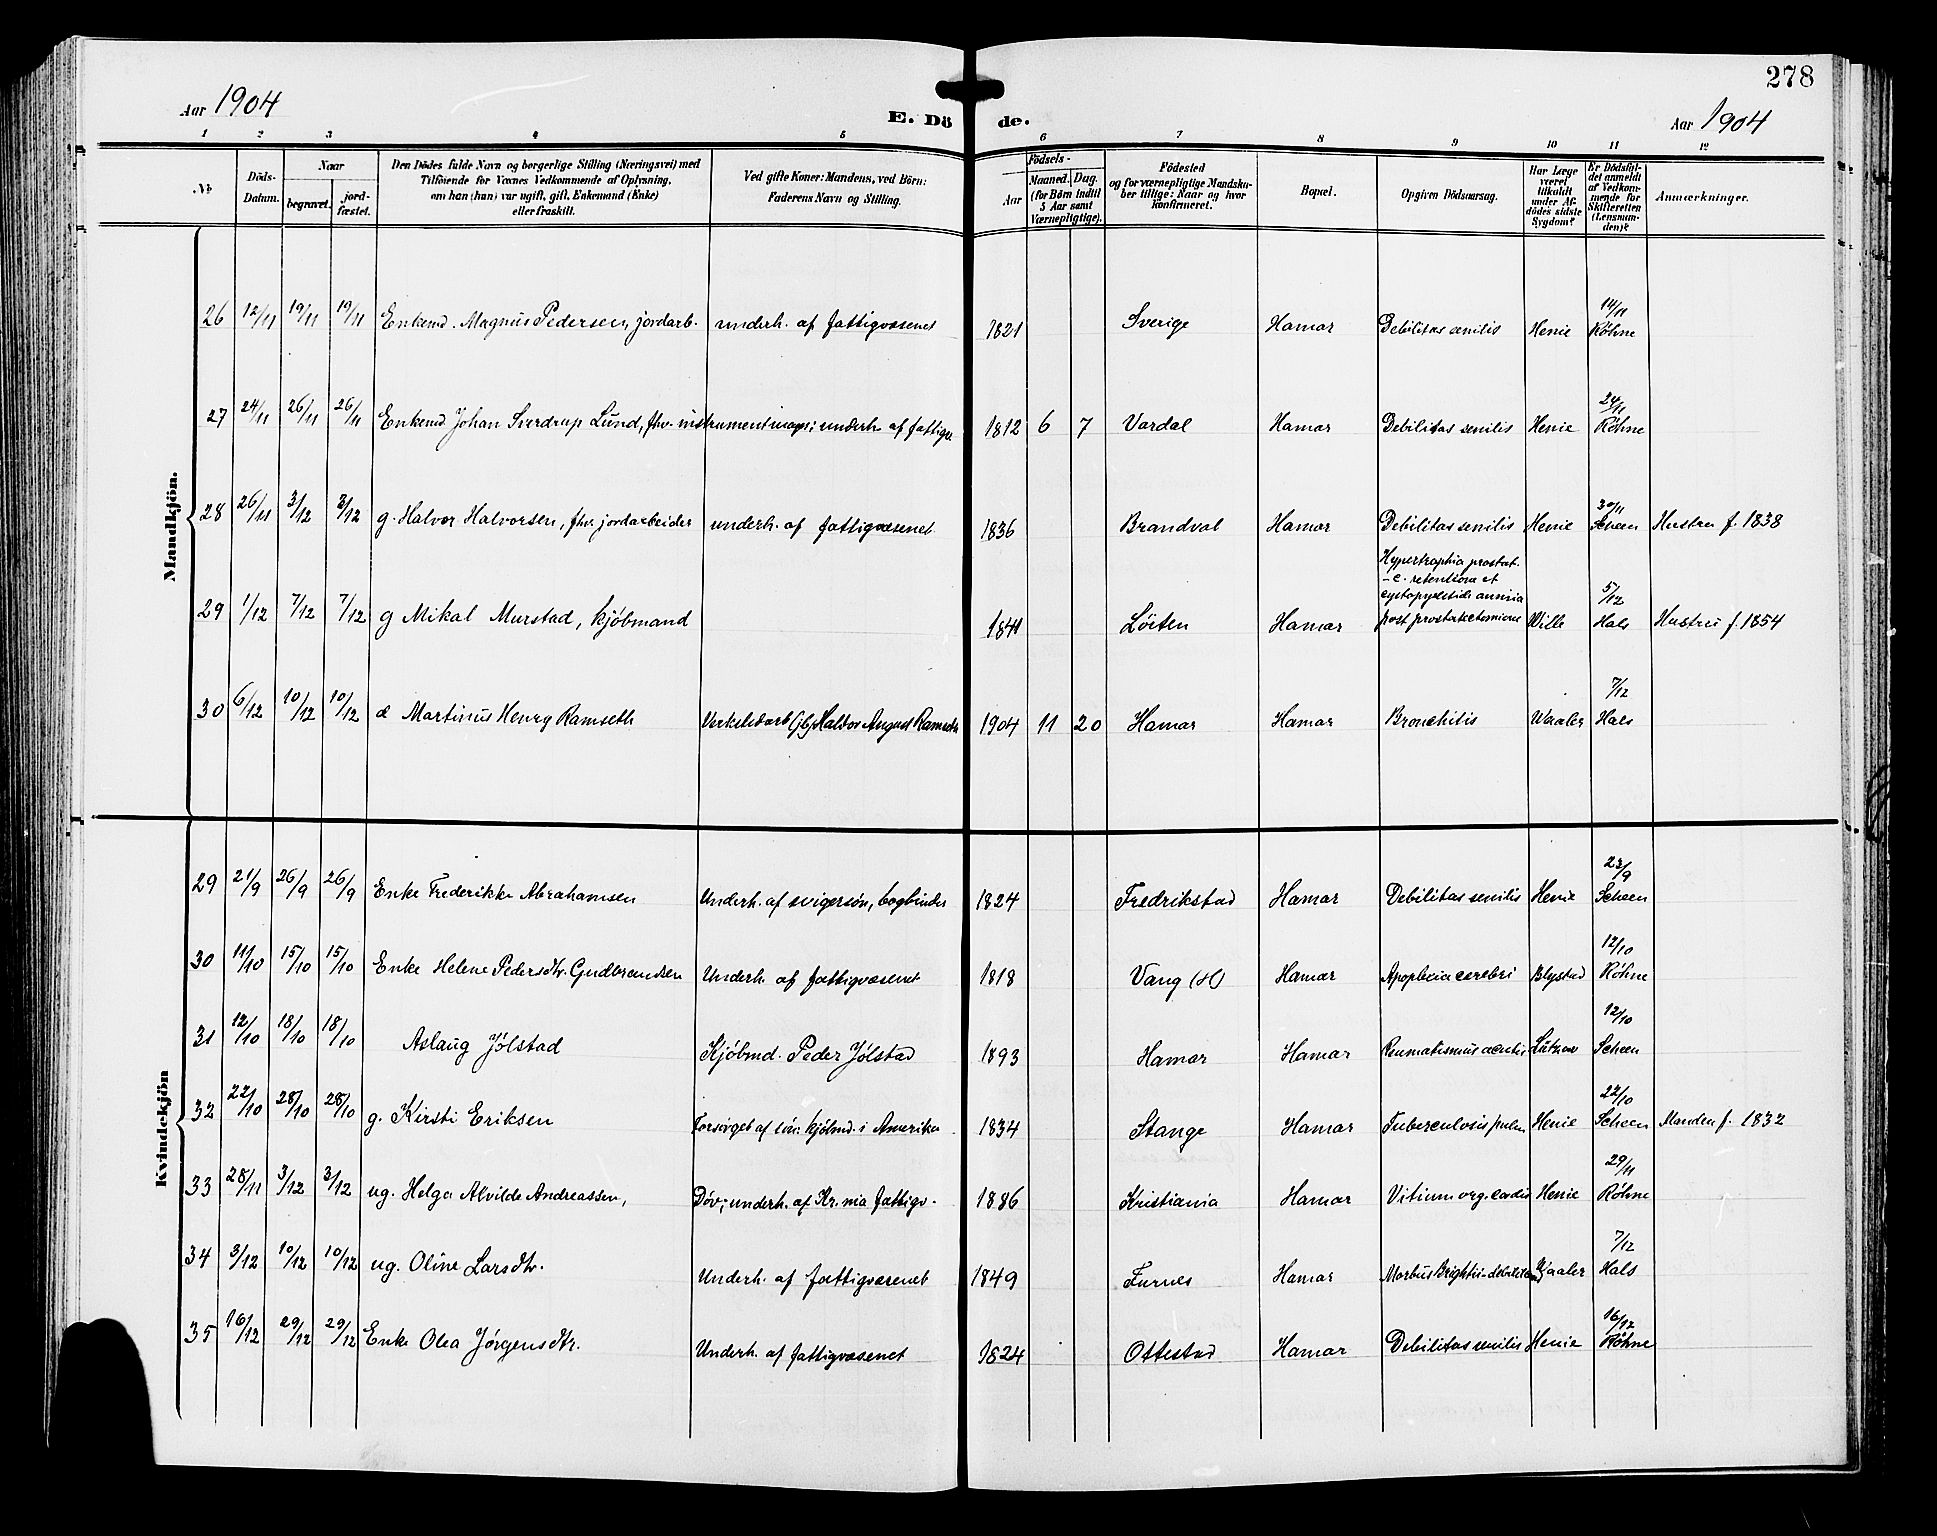 278
Aar 1904
E. Dö de.
Aar 1904
1 2 3 4 5 6 7 8 9 10 11 12
No
Döds-Datum.
Naar
begravet.
jord-fæstet.
Den Dödes fulde Navn og borgerlige Stilling (Næringsvei) med
Tilföiende for Vævnes Vedkommende af Oplysning,
om han (hun) var ugift, gift, Enkemand (Enke)
eller fraskilt.
Ved gifte Koner: Mandens, ved Börn:
Faderens Navn og Stilling.
Födsels-
Aar
Maaned. Dag.
(for Börn indtil
5 Aar samt
Værnepligtige).
Födested
og for værnepligtige Mandska-
ber tillige: Naar og hvor
konfirmeret.
Bopæl.
Opgiven Dödsaarsag.
Har Læge
været
tilkaldt
under Af-
dödes sidste
Sygdom?
Er Dödsfal-
det anmeldt
af Vedkom-
mende for
Skifteretten
(Lensman-
den)?
Anmærkninger.
Mandkjön.
26 12/11 19/11 19/11 Enkemd. Magnus Pedersen, jordarb. underh. af fattigvæsenet 1821 Sverige Hamar Debilitas senilis Henie 14/11 Röhne
27 24/11 26/11 26/11 Enkemd Johan Sverdrup Lund, fhv. instrumentmager; underh. af fattigv. 1812 6 7 Vardal Hamar Debilitas senilis Henie 24/11 Röhne
28 26/11 3/12 3/12 g. Halvor Halvorsen, fhv. jordarbeider underh. af fattigvæsenet 1836 Brandval Hamar Debilitas senilis Henie 30/11 Scheen Hustru f. 1838
29 1/12 7/12 7/12 g Mikal Murstad, kjøbmand 1841 Löiten Hamar Hypertrophia prostat.
-c. retentione et
post prostatectomiam Wille 5/12 Hals Hustru f. 1854
30 6/12 10/12 10/12 d Martinus Henry Ramseth Verkstedarb. (jb) Halvor August Ramseth 1904 11 20 Hamar Hamar Bronchitis Waaler 7/12 Hals
Kvindekjön
29 21/9 26/9 26/9 Enke Frederikke Abrahamsen Underh. af svigersön, bogbinder 1824 Fredrikstad Hamar Debilitas senilis Henie 23/9 Scheen
30 11/10 15/10 15/10 Enke Helene Pedersdtr. Gudbrandsen Underh. af fattigvæsenet 1818 Vang (H) Hamar Apoplexia cerebri Blystad 12/10 Röhne
31 12/10 18/10 18/10 Aslaug Jølstad Kjöbmd. Peder Jølstad 1893 Hamar Hamar Reumatismus acutus Lützow 12/10 Scheen
32 22/10 28/10 28/10 g. Kirsti Eriksen Forsörget af sön: kjöbmd. i Amerika 1834 Stange Hamar Tuberculosis pulm Henie 22/10 Scheen Manden f. 1832
33 28/11 3/12 3/12 ug. Helga Alvilde Andreassen, Döv; underh. af Kr.nia fattigv. 1886 Kristiania Hamar Vitium org. cordis Henie 29/11 Röhne
34 3/12 10/12 10/12 ug. Oline Larsdtr. Underh. af fattigvæsenet 1849 Furnes Hamar Morbus Brightii - debilitas Waaler 7/12 Hals
35 16/12 29/12 29/12 Enke Olea Jörgensdtr. Underh. af fattigvæsenet 1824 Ottestad Hamar Debilitas senilis Henie 16/12 Röhne